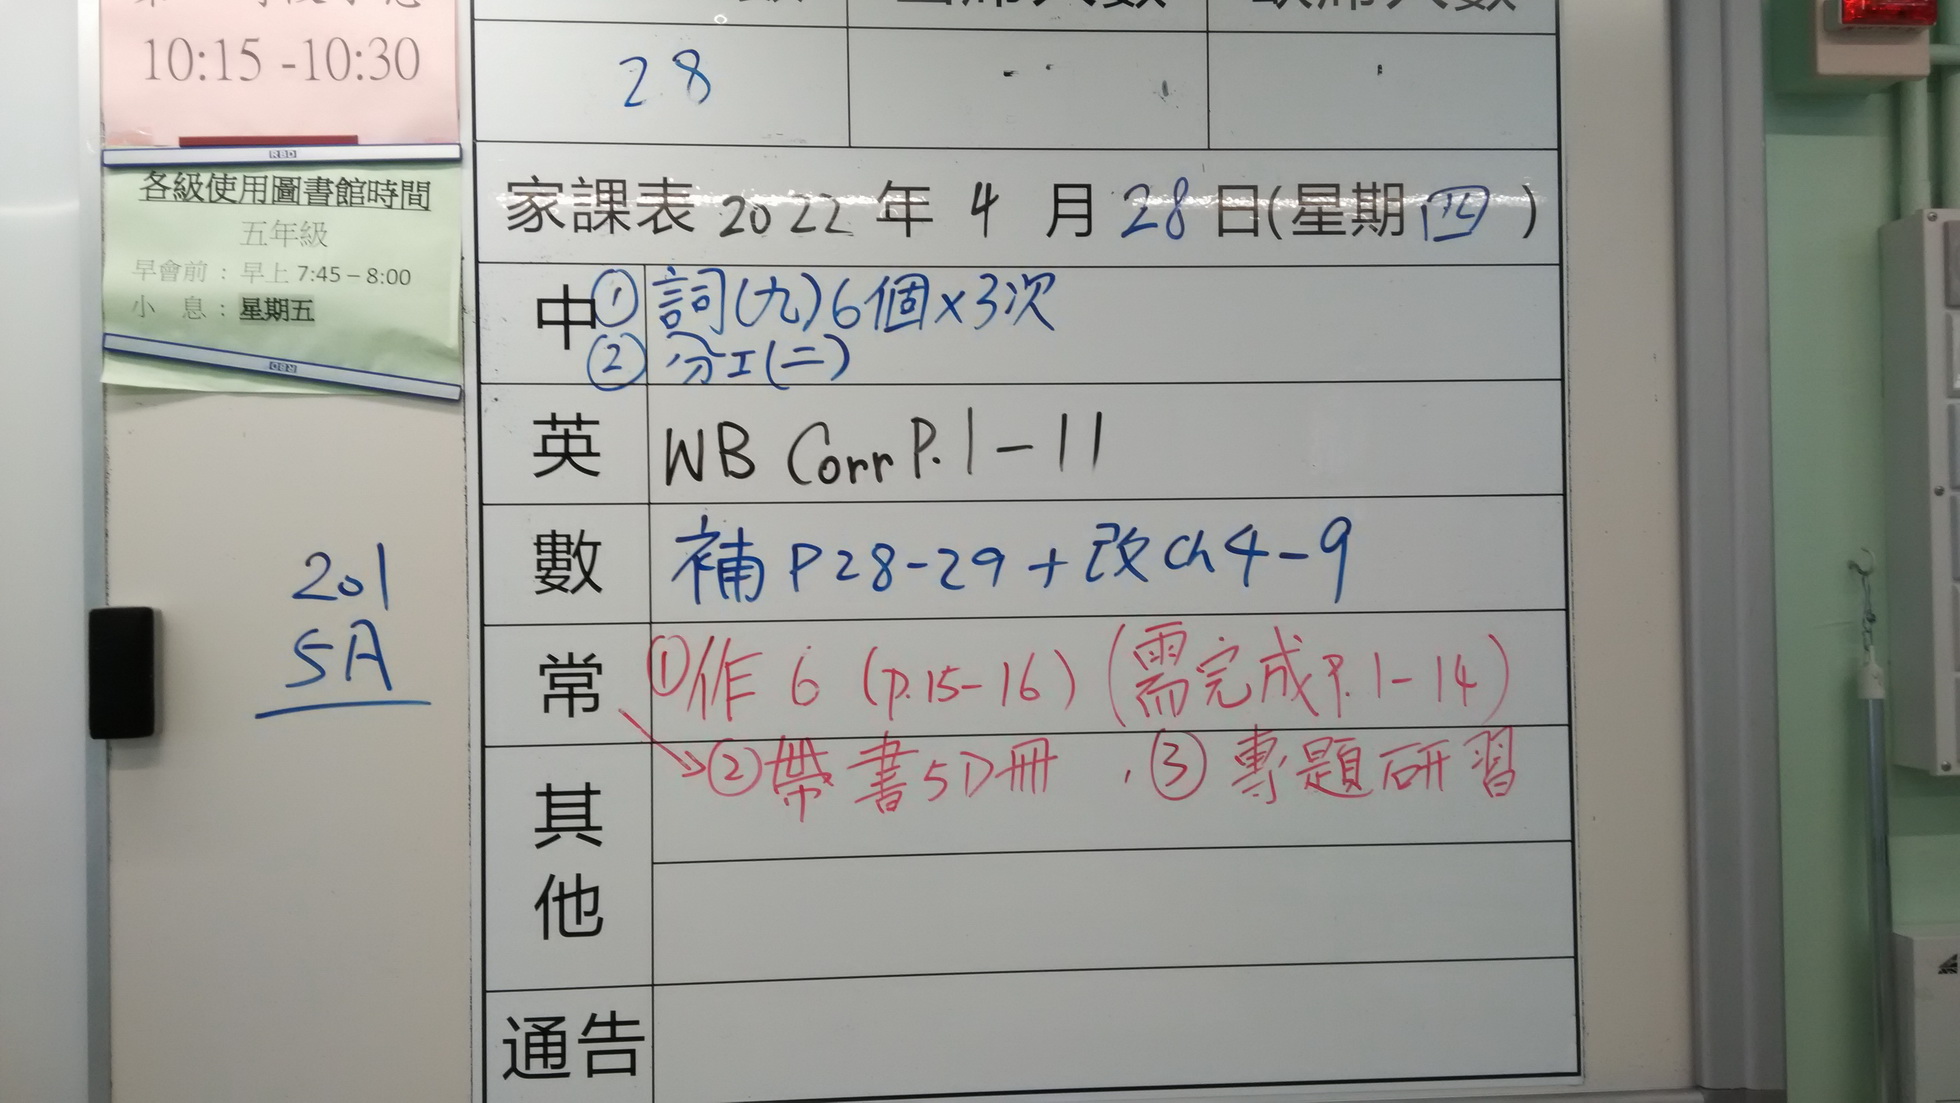 10:15 -10:30
RBD
各級使用圖書館時間
五年級
早會前：早上 7:45 – 8:00
小 息：星期五
RBD
201
5A
出席人數
28
家課表 2022 年 4 月 28 日(星期 四 )
中 ① 詞(九)6個×3次
② 分工(二)
英 WB Corr P.1-11
數 補 P28-29 + 改 Ch 4-9
常 ①作 6 (p.15-16) (需完成P.1-14)
②帶書5D冊 , ③ 專題研習
其他
通告